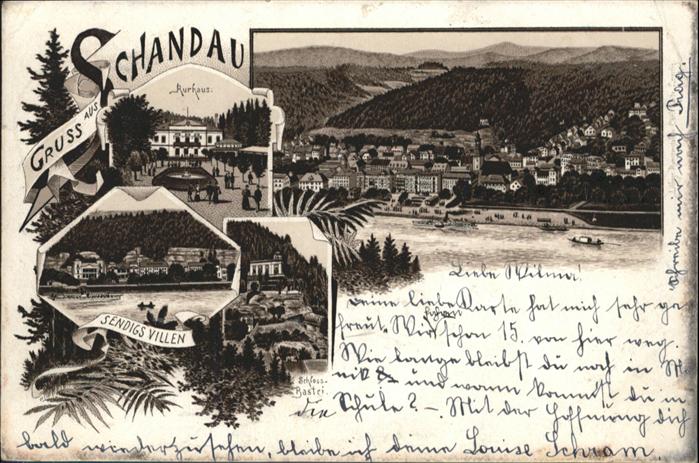 GRUSS AUS
SCHANDAU
Kurhaus.
SENDIGS VILLEN
Schloss-
Bastei.
Liebe Wilma!
Deine liebe Karte hat mich sehr ge
freut. Wir fahren schon 15. von hier weg.
Wie lange bleibst du noch in M
nik und wann kommst du in
die Schule? – Mit der Hoffnung dich
bald wiederzusehen, bleibe ich deine Louise Schram.
Schreibe mir nach Prag.